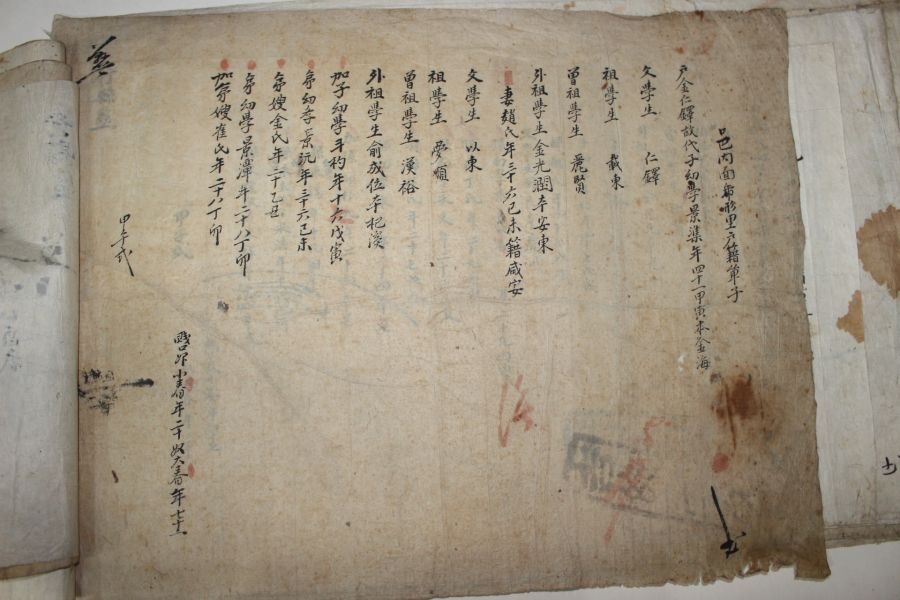 邑內面舟形里戶籍單子
戶金仁鐸故代子幼學景渫年四十一甲寅本金海
父學生 仁鐸
祖學生 載東
曾祖學生 麗賢
外祖學生金光潤本安東
妻趙氏年三十六己未籍咸安
父學生 以東
祖學生 夢
曾祖學生 漢裕
外祖學生俞成位本杞溪
加子幼學斗杓年十六戊寅
弟幼學景沅年三十六己未
弟嫂金氏年二十乙丑
弟幼學景澤年二十八丁卯
加弟嫂崔氏年二十八丁卯
甲午式
小春年二十奴大春年七十